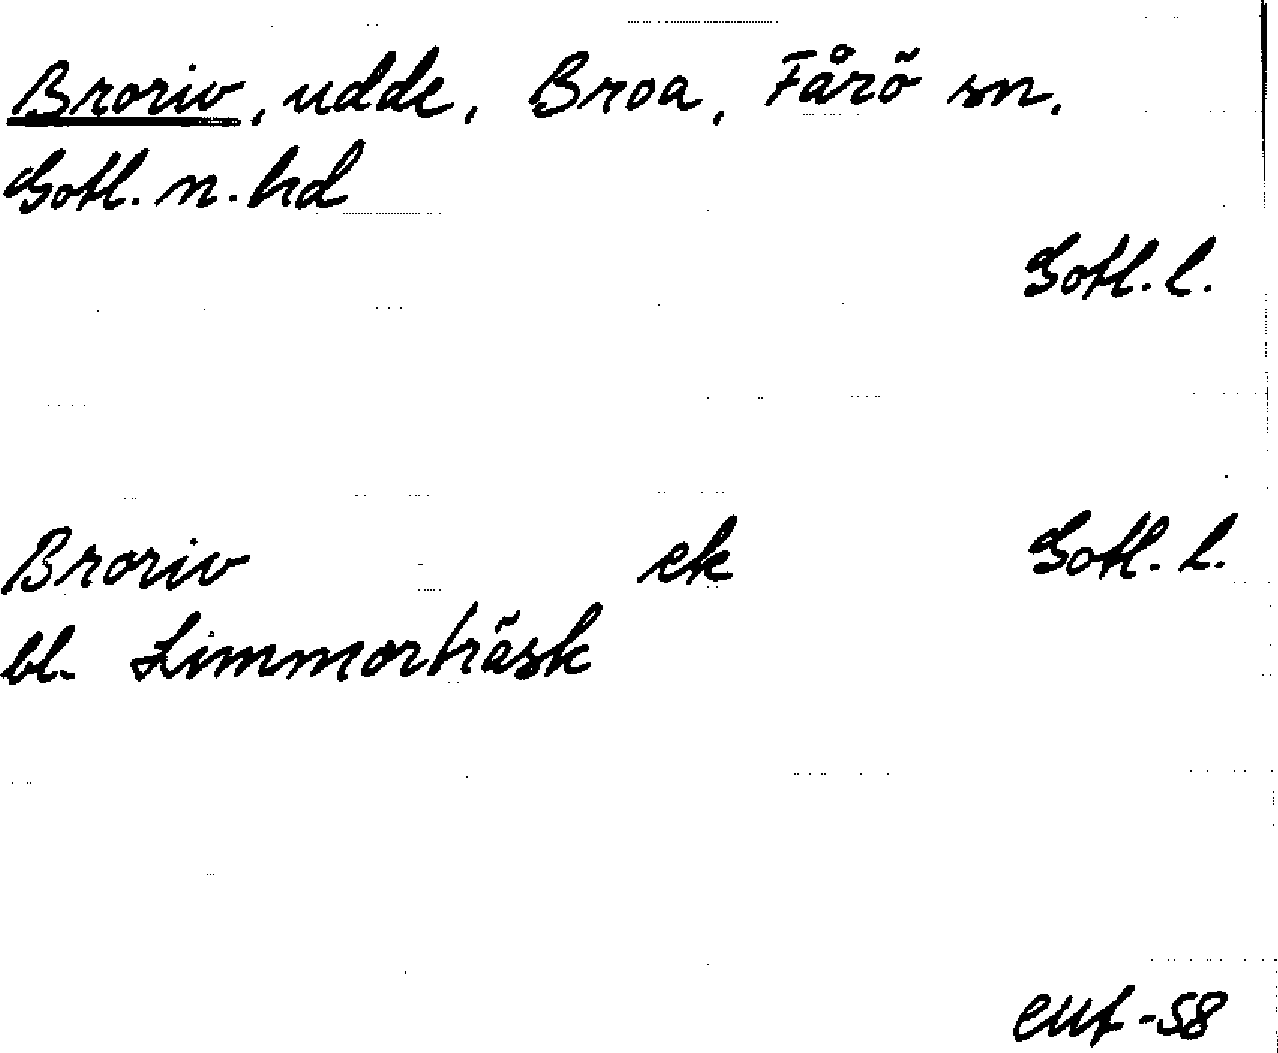 Broriv, udde, Broa, Fårö sn.
Gotl. n. hd
Gotl. l.
Broriv ek Gotl. l.
bl. Limmorträsk
-58